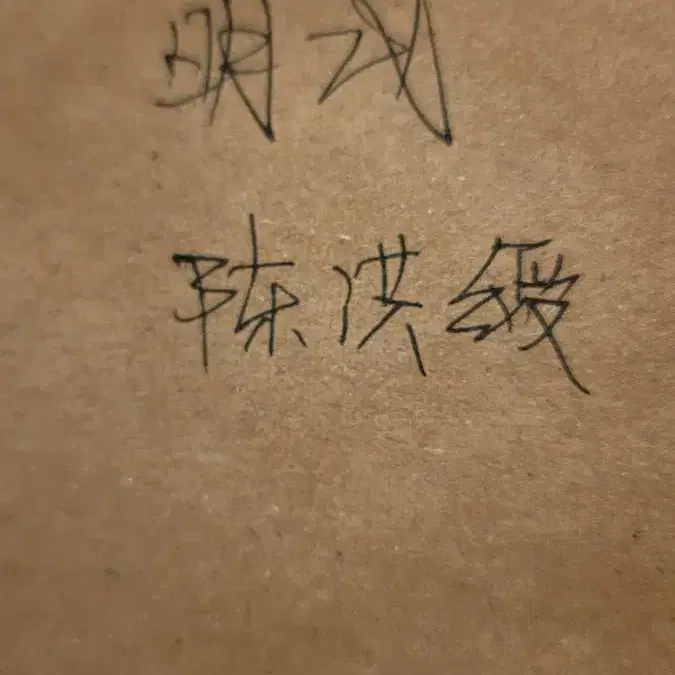 明戏
陈洪绶